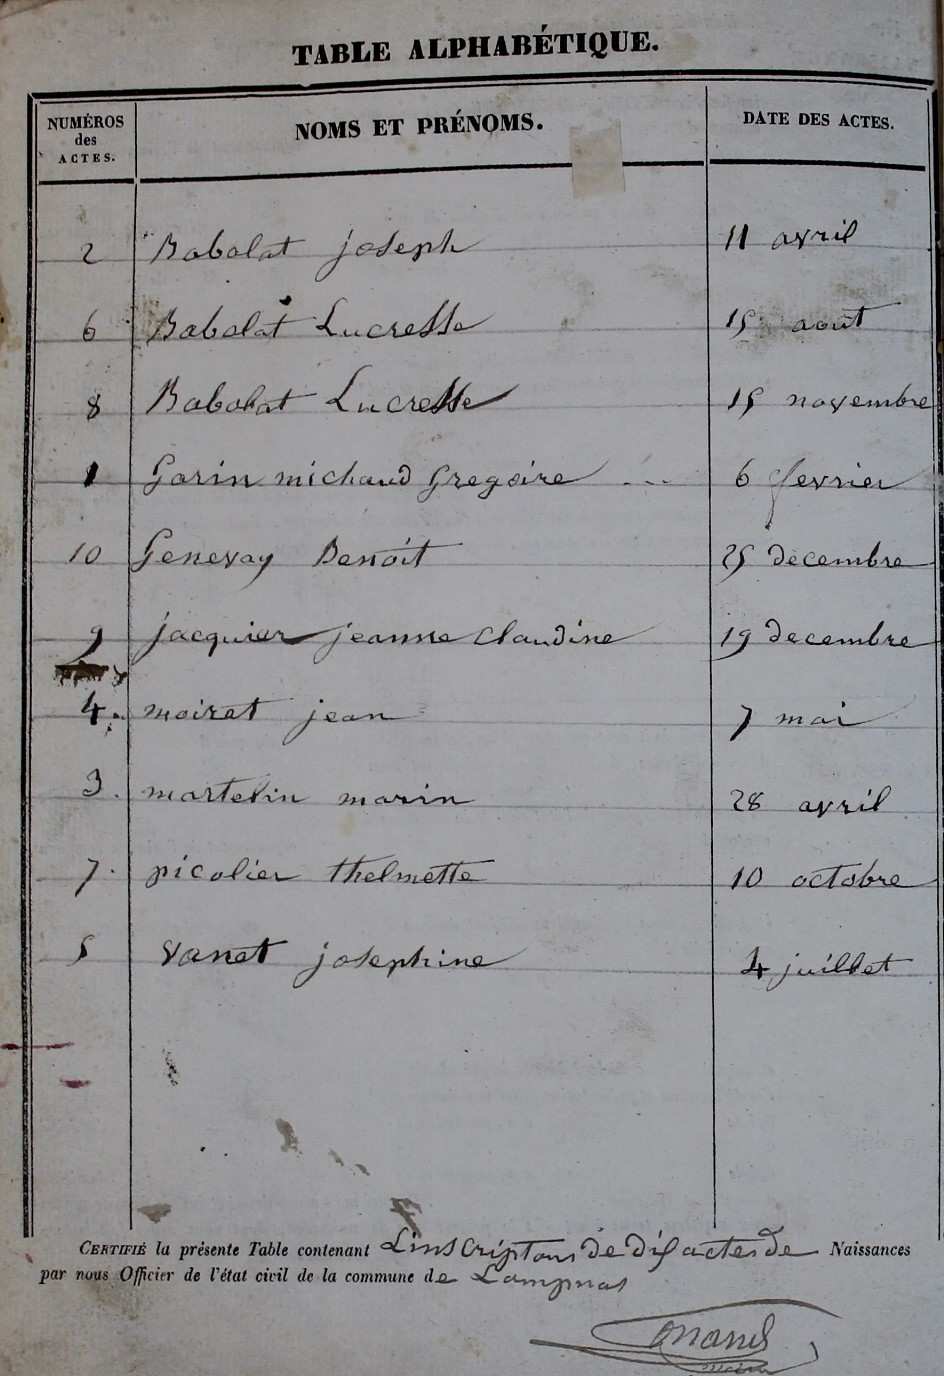 TABLE ALPHABÉTIQUE.
NUMÉROS des ACTES. NOMS ET PRÉNOMS. DATE DES ACTES.
2 Babolat joseph 11 avril
6 Babolat Lucresse 15 août
8 Babolat Lucresse 15 novembre
1 Garin michaud Gregoire 6 fevrier
10 Genevay Benoit 25 decembre
9 jacquier jeanne claudine 19 decembre
4 moiret jean 7 mai
3 martelin marin 28 avril
7 picolier thelmette 10 octobre
5 vanet josephine 4 juillet
CERTIFIÉ la présente Table contenant Linscriptons de dis actes de Naissances
par nous Officier de l'état civil de la commune de